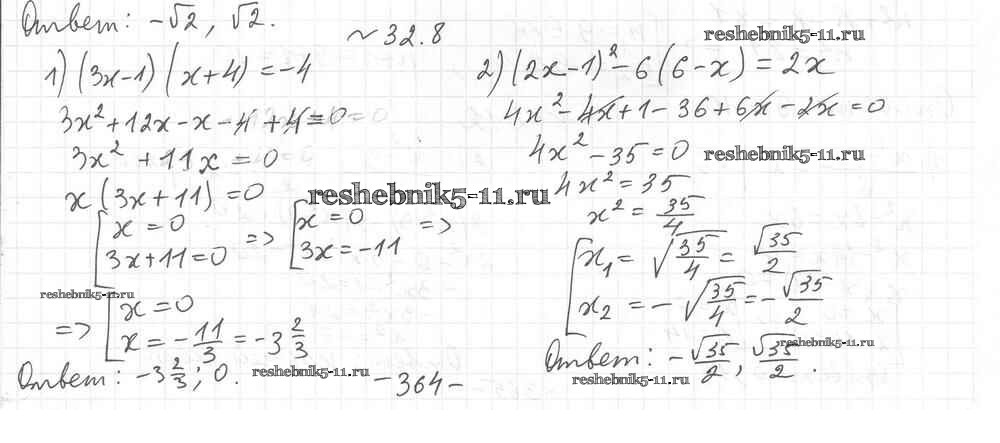 Ответ: -√2, √2.
~32.8
reshebnik5-11.ru
1) (3x-1)(x+4)=-4
3x²+12x-x-4+4=0
3x²+11x=0
x(3x+11)=0
reshebnik5-11.ru
[x=0
3x+11=0
=> [x=0
3x=-11
=>
reshebnik5-11.ru
=> [x=0
x=-11/3=-3 2/3
Ответ: -3 2/3; 0.
reshebnik5-11.ru
2) (2x-1)²-6(6-x)=2x
4x²-4x+1-36+6x-2x=0
4x²-35=0
reshebnik5-11.ru
4x²=35
x²=35/4
[x₁=√(35/4)=√35/2
x₂=-√(35/4)=-√35/2
reshebnik5-11.ru
Ответ: -√35/2, √35/2.
reshebnik5-11.ru
-364-